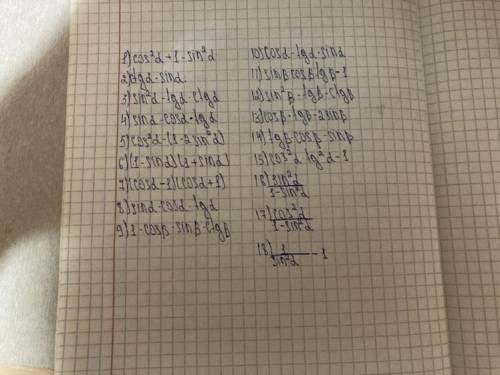 1) cos²α + 1 - sin²α
2) ctgα · sinα
3) sin²α - tgα · ctgα
4) sinα · cosα · tgα
5) cos²α - (1 - 2sin²α)
6) (1 - sinα)(1 + sinα)
7) (cosα - 1)(cosα + 1)
8) sinα · cosα · tgα
9) 1 - cosβ · sinβ · ctgβ
10) cosα · tgα · sinα
11) sinβ cosβ tgβ - 1
12) sin²β - tgβ · ctgβ
13) cosβ · tgβ - 2sinβ
14) tgβ · cosβ - sinβ
15) cos²α · tg²α - 1
16) sin²α / 1 - sin²α
17) cos²α / 1 - sin²α
18) 1 / sin²α - 1